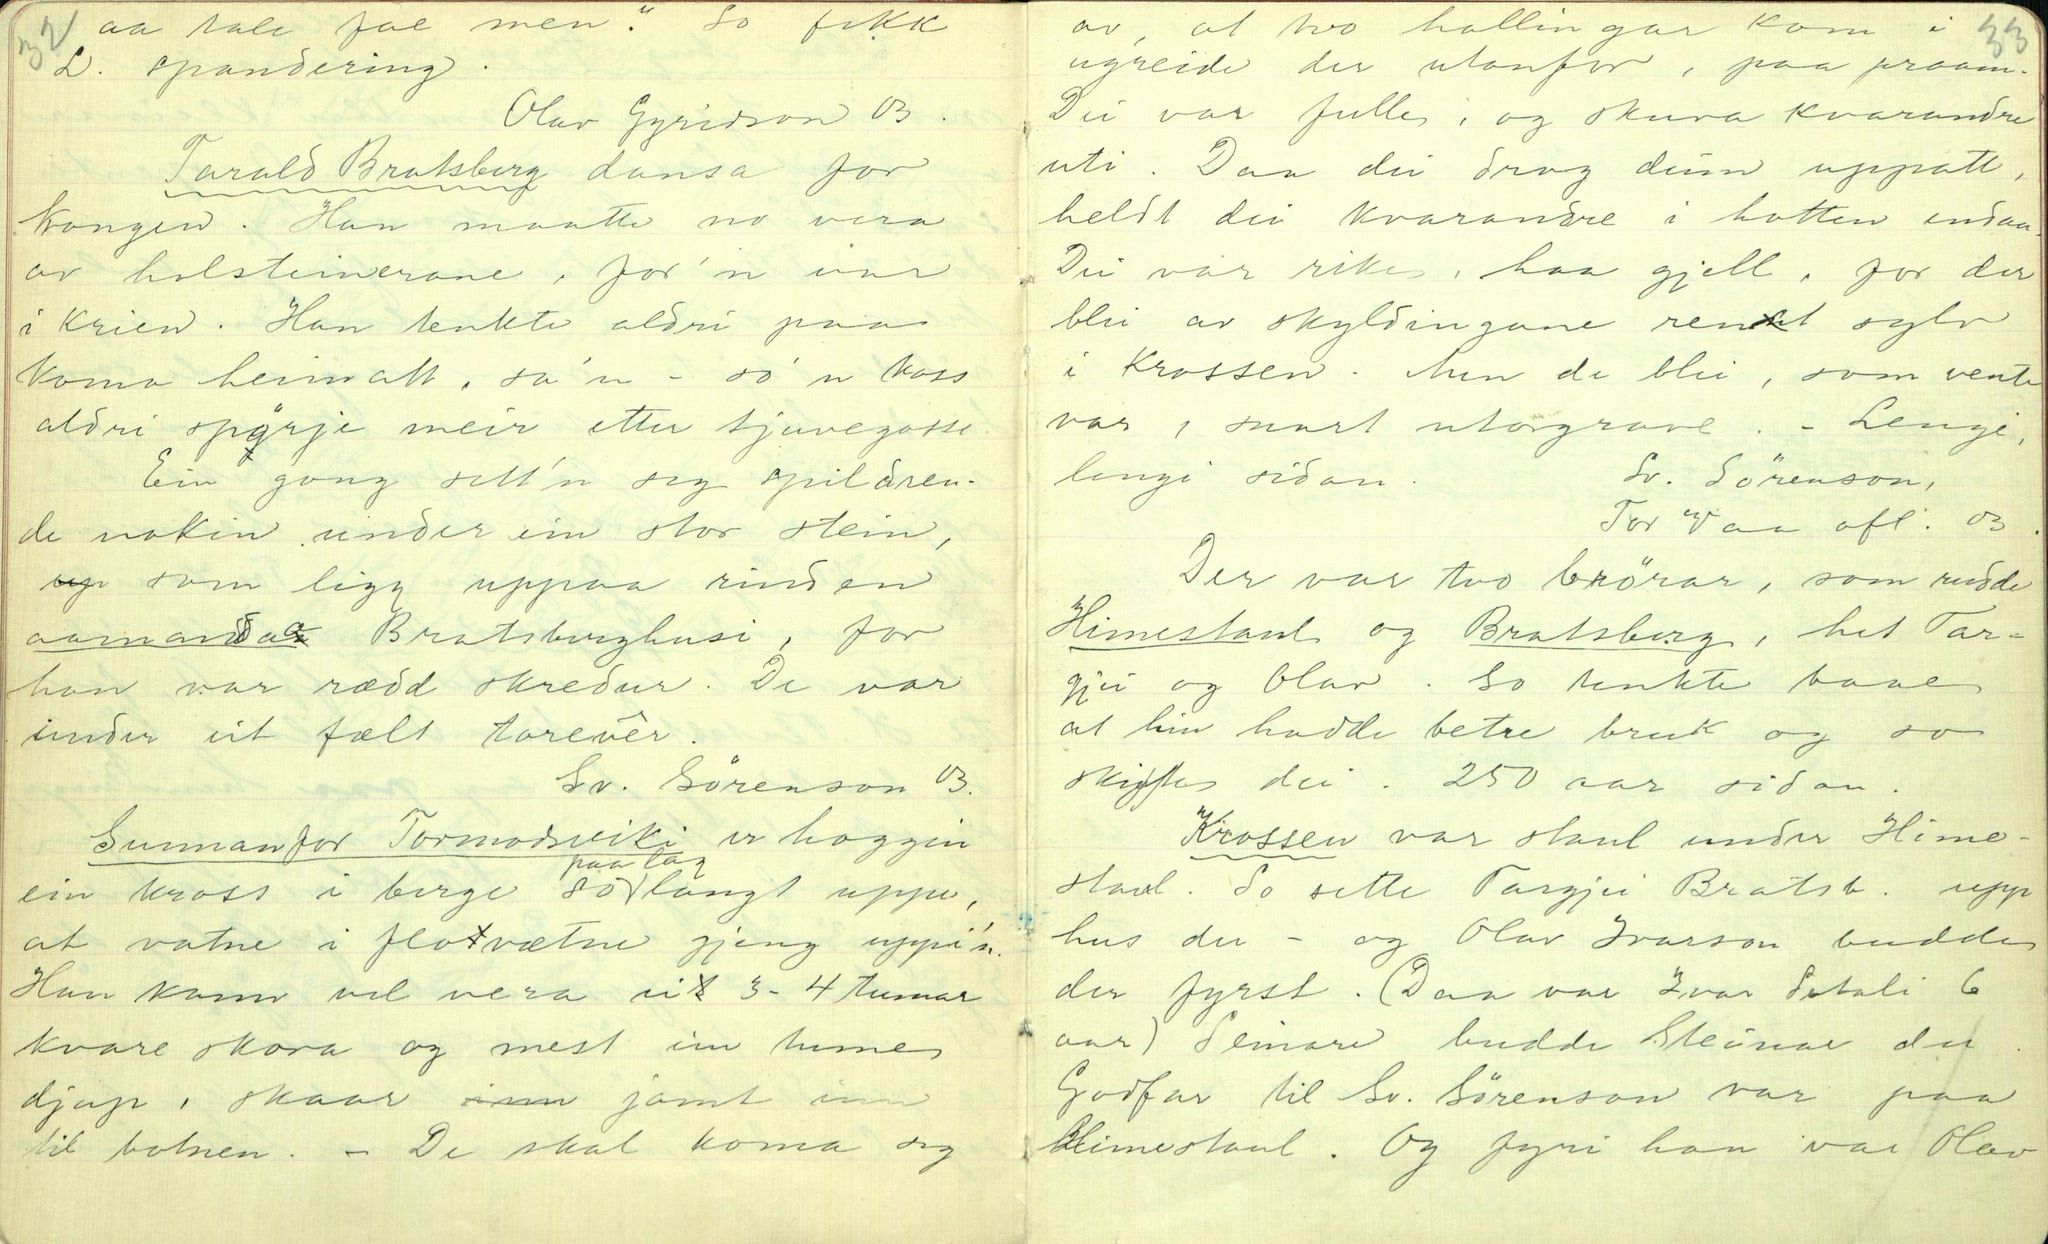 32
aa tale fae men." So fekk
L. spandering.
Olav Gyridson 03.
Tarald Bratsberg dansa for
kongen. Han maatte no vera
av holsteinerane, for'n var
i krien. Han tenkte aldri paa
koma heimatt, sa'n - so'n kass
aldri spørje meir etter tjuvegosse.
Ein gong sett'n seg spildren-
de nakin under ein stor stein,
som ligg uppaa rinden
aamanda Bratsberghusi, for
han var rædd skreidur. De var
under eit fælt toreveêr.
Sv. Sörenson 03.
Sunnanfor Tormodsviki er hoggin
ein kross i berge so paa lag langt uppe,
at vatne i flotvætne gjeng uppi'n.
Han kann vel vera eit 3-4 tumar
kvare skora og mest ein tume
djup, skaar jamt inn
til botnen. - De skal koma seg
33
av, at two hallingar kom i
ugreide der utanfor, paa praam.
Dei var fulle, og skuva kvarandre
uti. Daa dei drog deim uppatt,
heldt dei kvarandre i hotten endaa.
Dei var rike, haa gjell, for der
blei av skyldingane rent sylv
i Krossen. Men de blei, som vente
var, snart utorgrave. - Lengji,
lengi sidan.
Sv. Sörenson,
Tor Vaa ofl. 03.
Der var two brörar, som rudde
Himestaul og Bratsberg, het Tar-
gjei og Olav. So tenkte baae
at hin hadde betre bruk og so
skifte dei. 250 aar sidan.
Krossen var staul under Hime-
staul. So sette Targjei Bratsb. upp
hus der - og Olav Ivarson budde
der fyrst. (Daa var Ivar Setali 6
aar) Seinare budde Steinar der.
Godfar til Sv. Sörenson var paa
Himestaul. Og fyri han var Olav